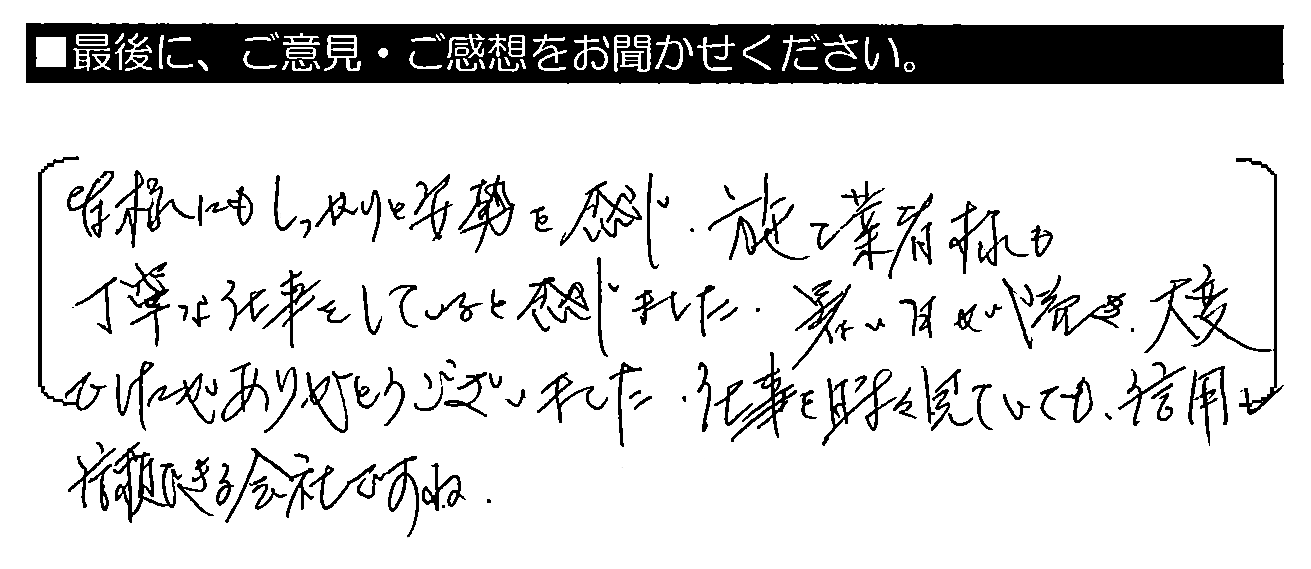 ■最後に、ご意見・ご感想をお聞かせください。
皆様にもしっかりと姿勢を感じ、施工業者様も
丁寧な仕事をしていると感じました。暑い日が続き、大変
でしたがありがとうございました。仕事を時々見ていても、信用し
信頼できる会社ですね。